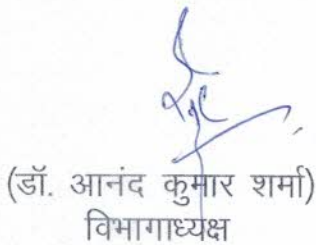 (डॉ. आनंद कुमार शर्मा)
विभागाध्यक्ष